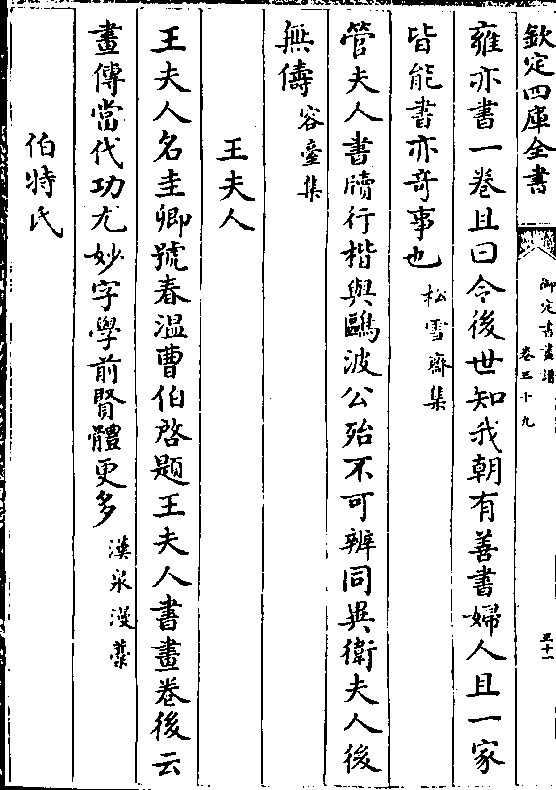 欽定四庫全書
御定書畫譜
卷三十九
三十一
雍亦書一卷且曰令後世知我朝有善書婦人且一家
皆能書亦竒事也松雪齋集
管夫人書牘行楷與鷗波公殆不可辨同異衛夫人後
無儔容臺集
王夫人
王夫人名圭卿號春溫曹伯啓題王夫人書畫卷後云
畫傳當代功尤妙字學前賢體更多漢泉漫藳
伯特氏